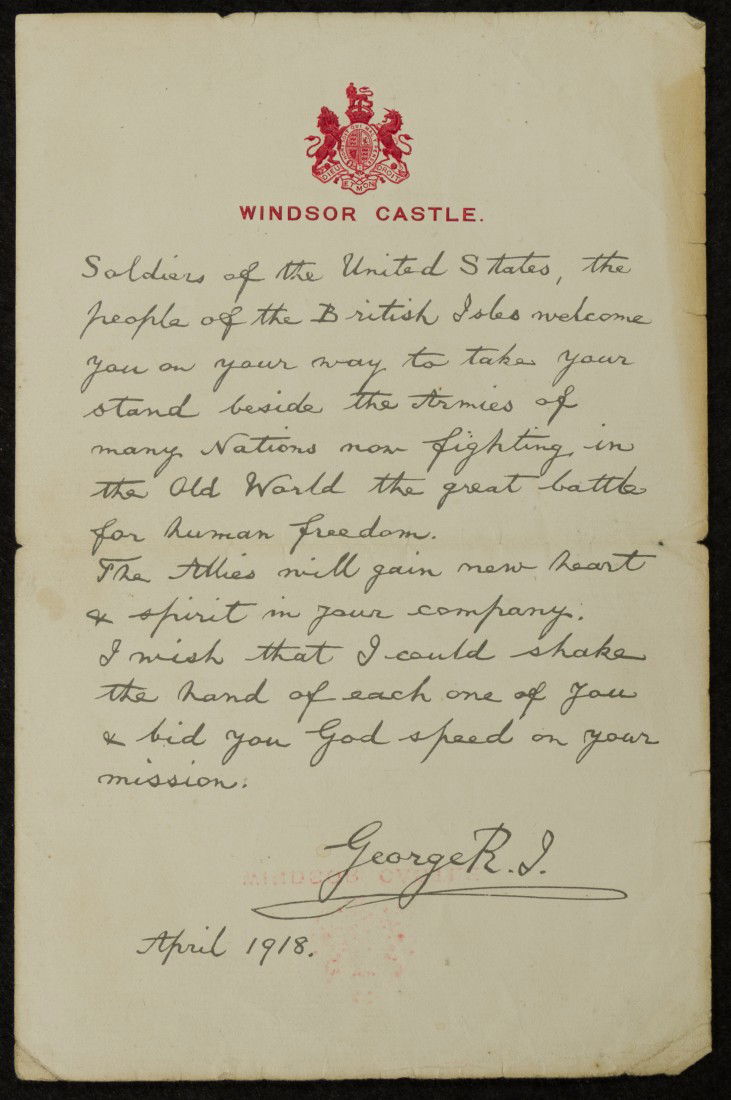 HONI SOIT QUI MAL Y PENSE
DIEU ET MON DROIT
WINDSOR CASTLE.
Soldiers of the United States, the
people of the British Isles welcome
you on your way to take your
stand beside the Armies of
many Nations now fighting in
the Old World the great battle
for human freedom.
The Allies will gain new heart
& spirit in your company.
I wish that I could shake
the hand of each one of you
& bid you God speed on your
mission.
George R.I.
April 1918.